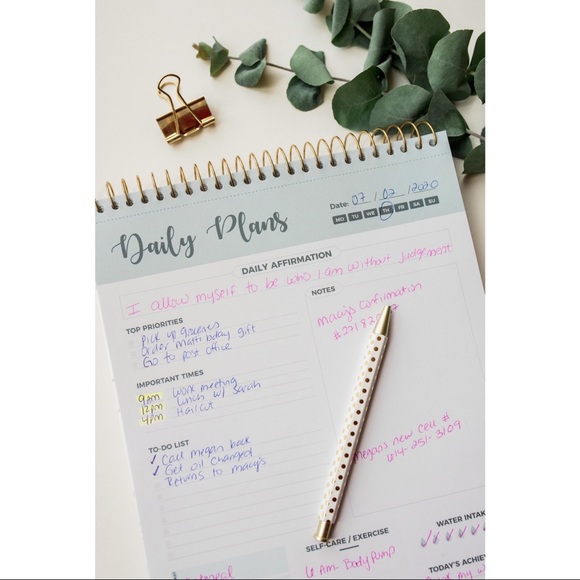 Daily Plans
Date: 07 / 02 / 2020
MO TU WE TH FR SA SU
DAILY AFFIRMATION
I allow myself to be who I am without judgement
TOP PRIORITIES
Pick up groceries
order Matti bday gift
Go to post office
IMPORTANT TIMES
9am Work meeting
12pm Lunch w/ Sarah
4pm Haircut
TO-DO LIST
✓ Call megan back
✓ Get oil changed
Returns to macy's
NOTES
macy's confirmation
megan's new cell #
614-251-3109
SELF-CARE / EXERCISE
6 Am- Body Pump
WATER INTAK
TODAY'S ACHIE